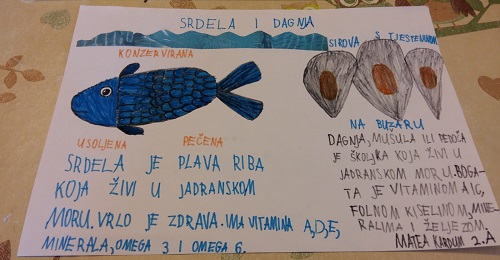 SRDELA I DAGNJA
KONZERVIRANA
USOLJENA PEČENA
SRDELA JE PLAVA RIBA
KOJA ŽIVI U JADRANSKOM
MORU. VRLO JE ZDRAVA. IMA VITAMINA A,D,E,
MINERALA, OMEGA 3 I OMEGA 6.
SIROVA S TJESTENINOM
NA BUZARU
DAGNJA, MUSULA ILI PEDOČA
JE ŠKOLJKA KOJA ŽIVI U
JADRANSKOM MORU. BOGA-
TA JE VITAMINOM A I C,
FOLNOM KISELINOM, MINE-
RALIMA I ŽELJEZOM.
MATEA KARDUM 2.A